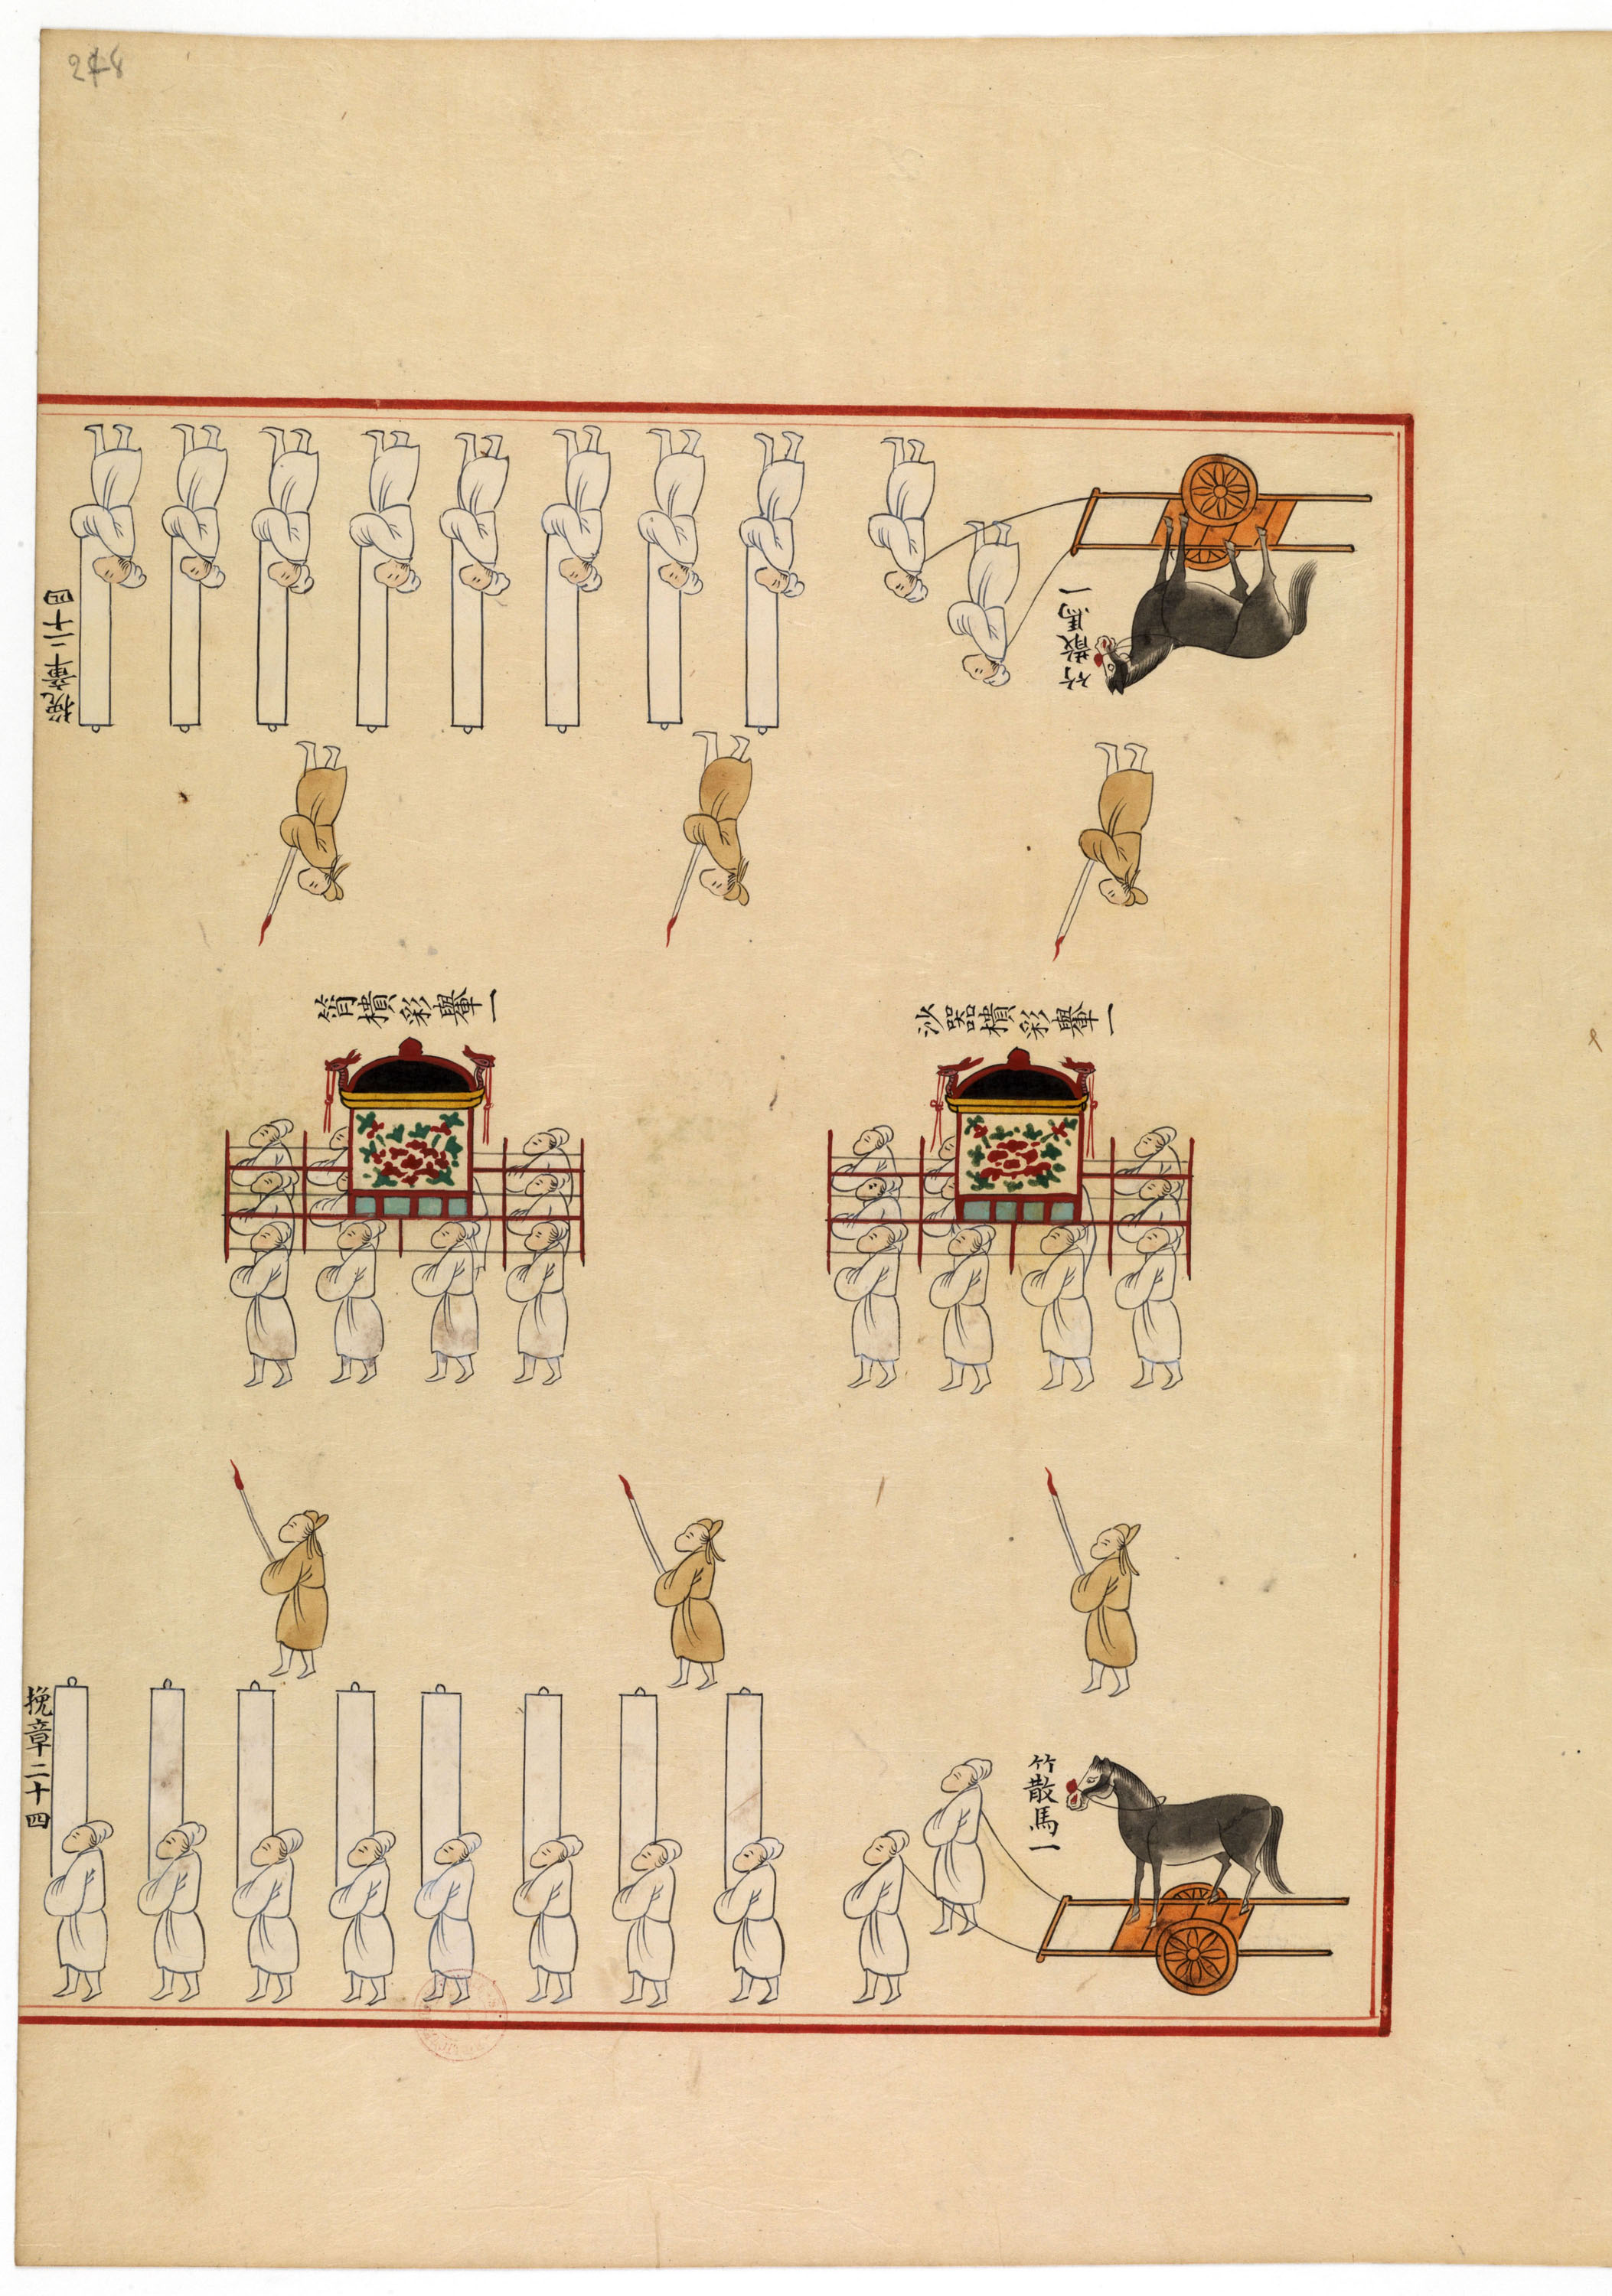 248
挽章二十四
竹散馬一
筲樻彩轝一
沙器樻彩轝一
挽章二十四
竹散馬一